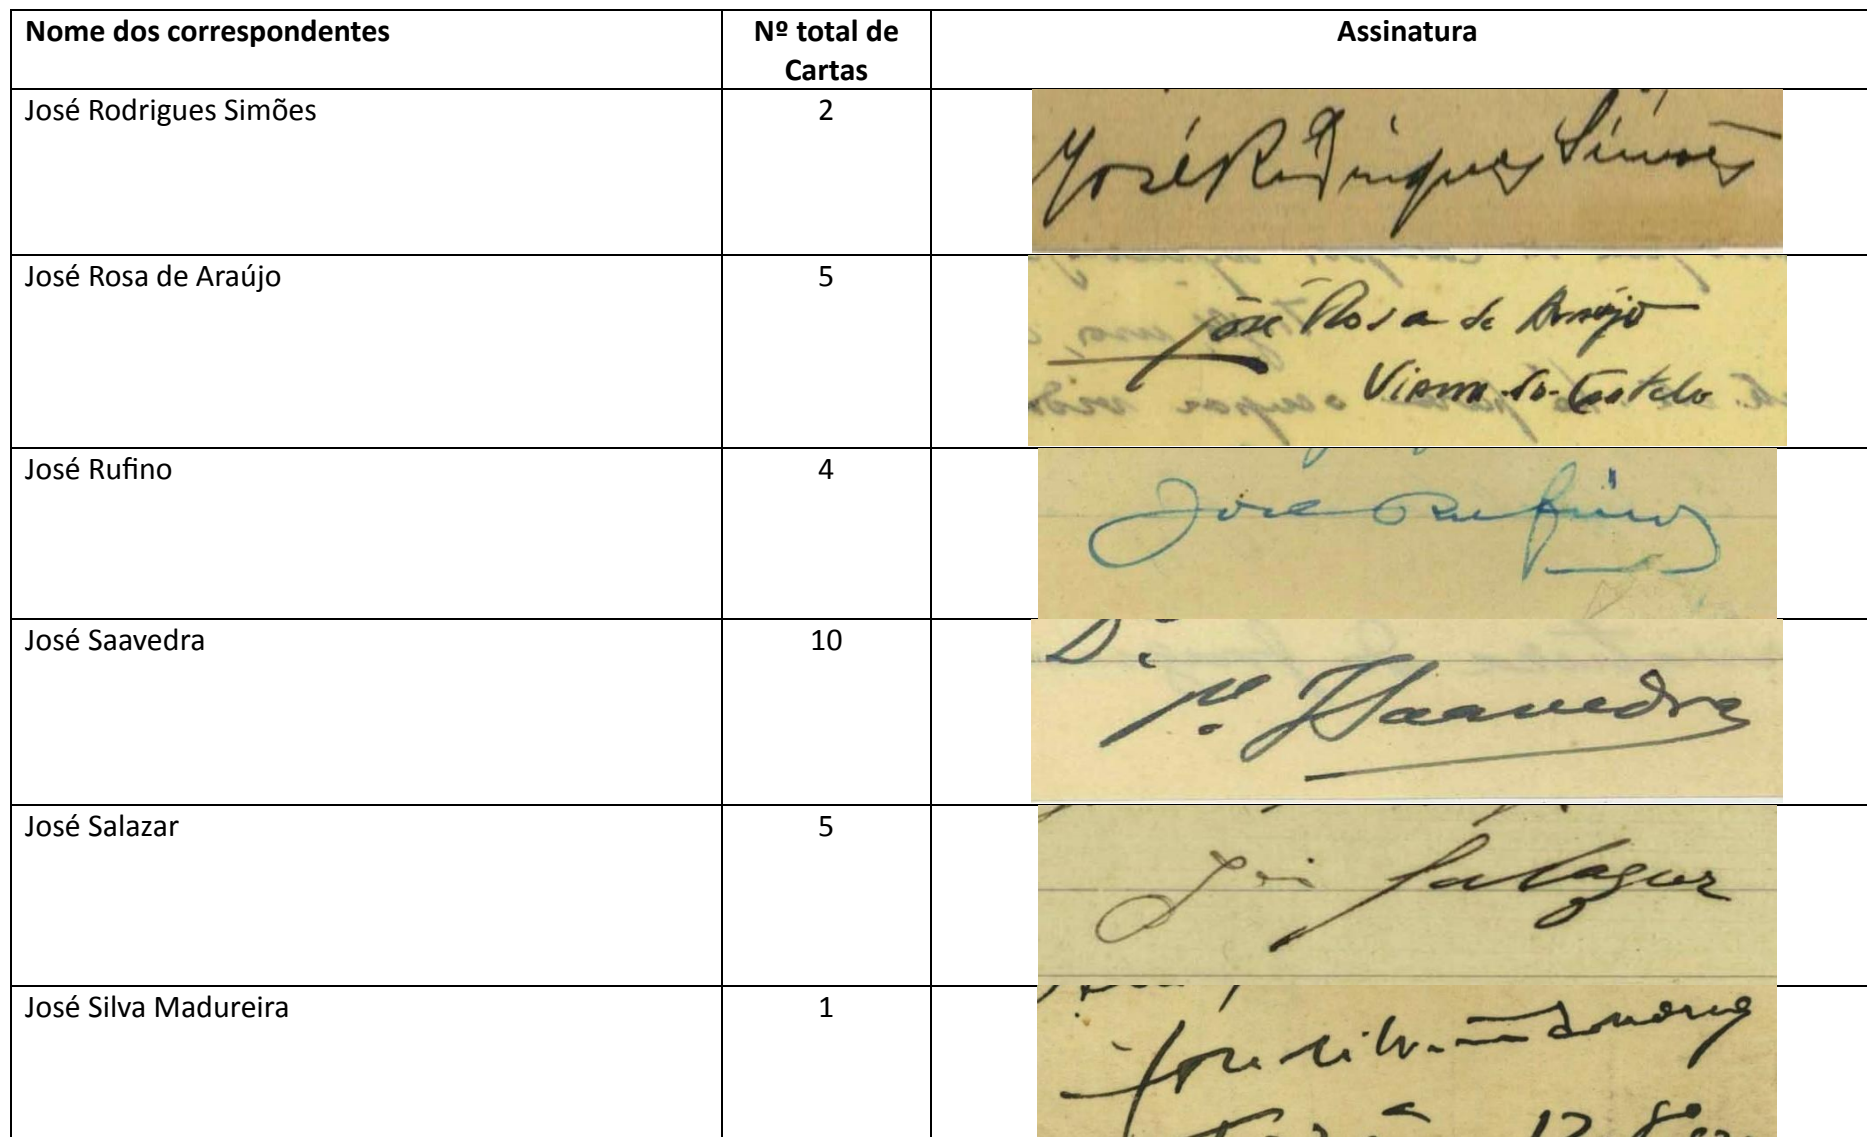 Nome dos correspondentes
Nº total de
Cartas
Assinatura
José Rodrigues Simões
2
José Rodrigues Simões
José Rosa de Araújo
5
José Rosa de Araújo
Viana-do-Castelo
José Rufino
4
José Rufino
José Saavedra
10
P.e J Saavedra
José Salazar
5
José Salazar
José Silva Madureira
1
José Silva Madureira